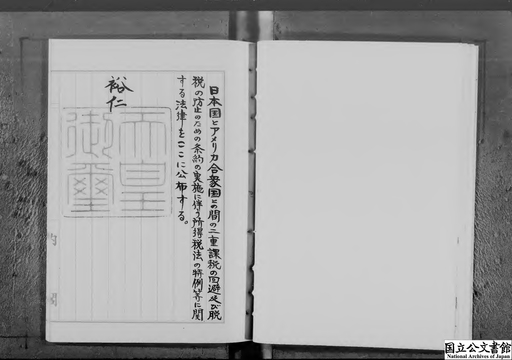 日本国とアメリカ合衆国との間の二重課税の回避及び脱
税の防止のための条約の実施に伴う所得税法の特例等に関
する法律をここに公布する。
裕仁
天皇
御璽
国立公文書館
National Archives of Japan